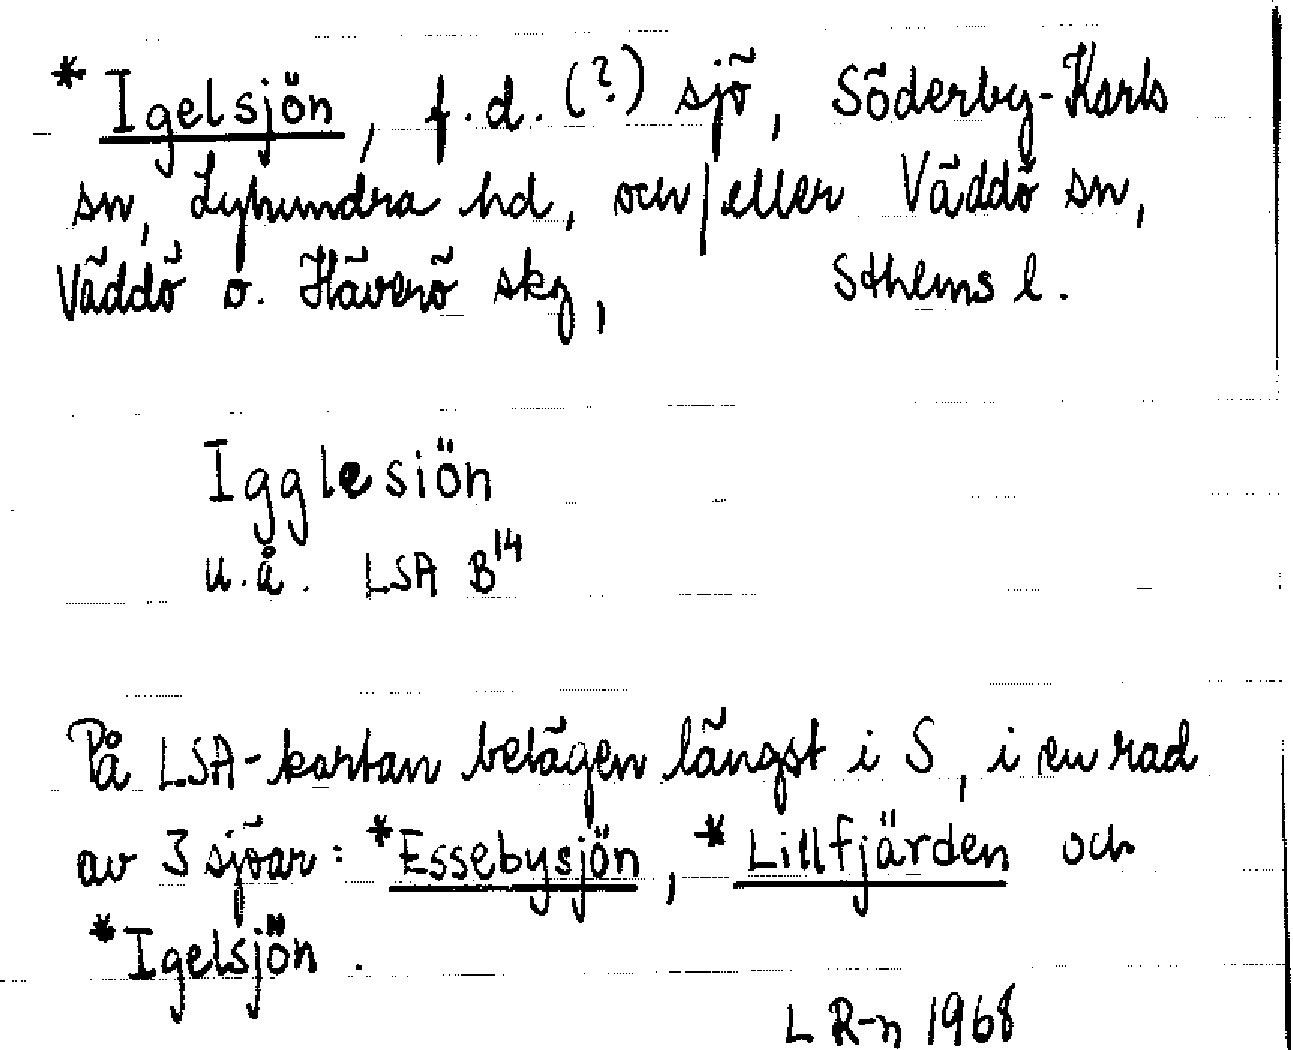 *Igelsjön, f.d. (?) sjö, Söderby-Karls
sn, Lyhundra hd, och/eller Väddö sn,
Väddö o. Häverö skg, Sthlms l.
Igglesiön
u.å. LSA B¹⁴
På LSA-kartan belägen längst i S, i en rad
av 3 sjöar: *Essebysjön, *Lillfjärden och
*Igelsjön.
L R-n 1968